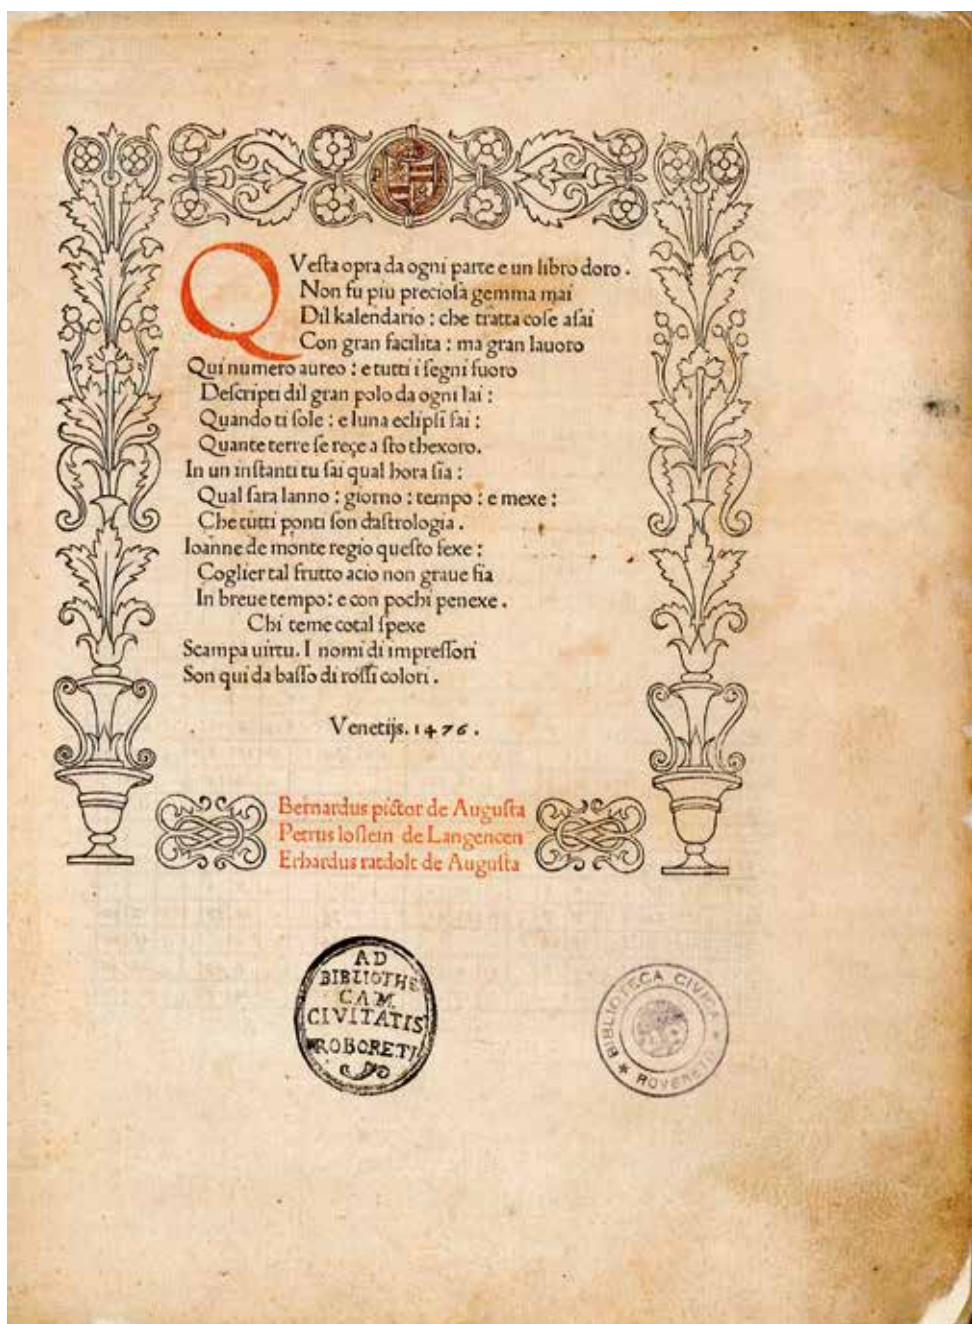 QVesta opra da ogni parte e un libro doro.
Non fu piu preciosa gemma mai
Dil kalendario: che tratta cose asai
Con gran facilita: ma gran lauoro
Qui numero aureo: e tutti i segni fuoro
Descripti dil gran polo da ogni lai:
Quando ti sole: e luna eclipsi fai:
Quante terre se reçe a sto thexoro.
In un instanti tu sai qual hora sia:
Qual sara lanno: giorno: tempo: e mexe:
Che tutti ponti son dastrologia.
Ioanne de monte regio questo fexe:
Coglier tal frutto acio non graue sia
In breue tempo: e con pochi penexe.
Chi teme cotal spexe
Scampa uirtu. I nomi di impressori
Son qui da basso di rossi colori.
Venetijs. 1476.
Bernardus pictor de Augusta
Petrus loslein de Langencen
Erhardus ratdolt de Augusta
AD
BIBLIOTHE
CAM
CIVITATIS
ROBORETI
BIBLIOTECA CIVICA
ROVERETO